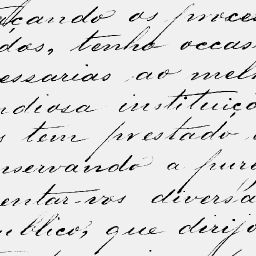 çando os proces
dos, tenho occas
essarias ao melh
ndiosa instituiçã
s tem prestado
nservando a pure
entar-vos diversa
ublico, que dirijo